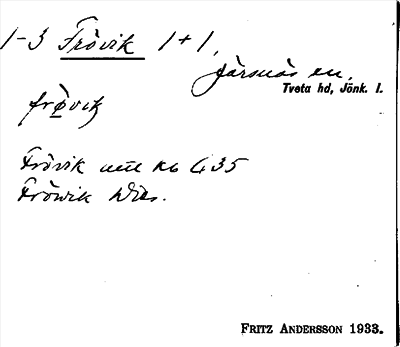 1-3 Frövik 1+1,
Järsnäs sn,
Tveta hd, Jönk. l.
frö̀vik
Frövik
Fröwik
FRITZ ANDERSSON 1933.